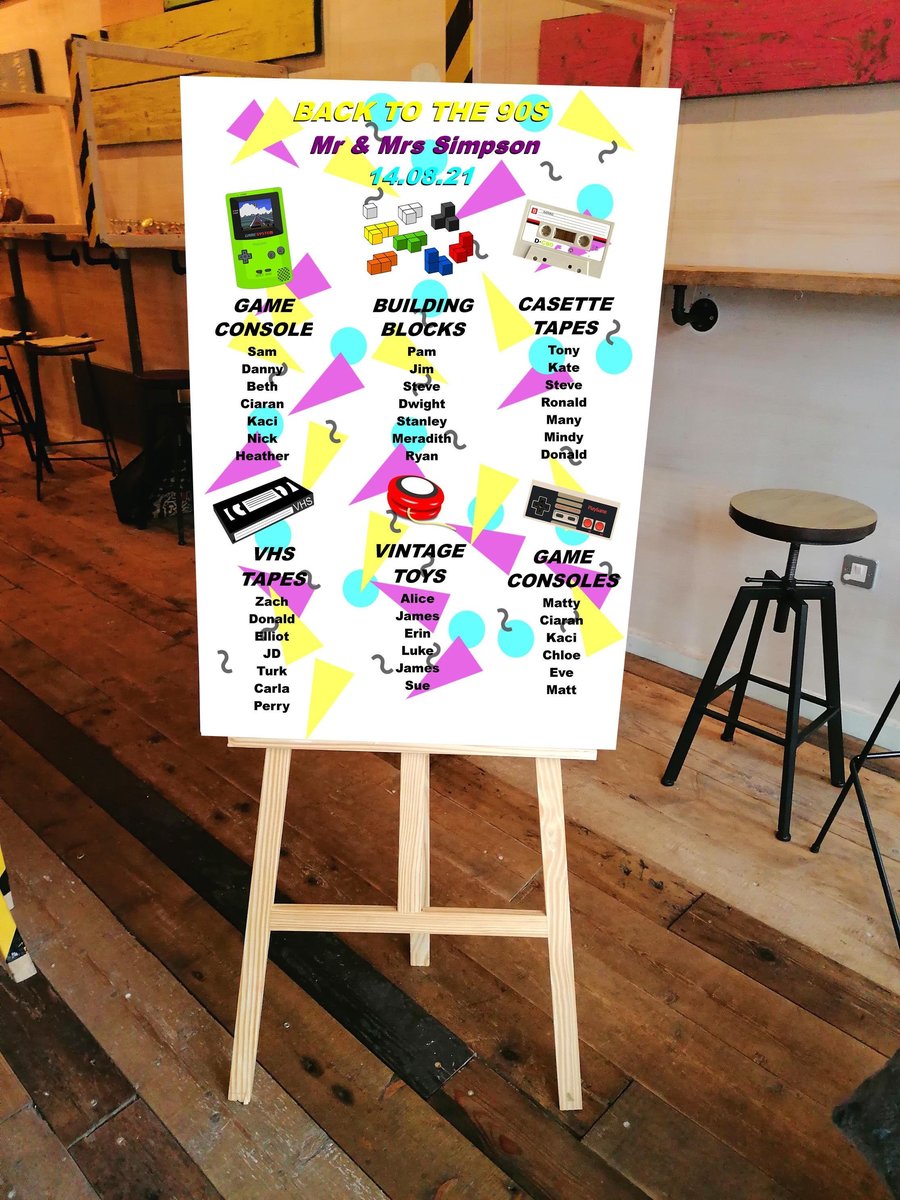 BACK TO THE 90S
Mr & Mrs Simpson
14.08.21
GAME SYSTEM
GAME
CONSOLE
Sam
Danny
Beth
Ciaran
Kaci
Nick
Heather
BUILDING
BLOCKS
Pam
Jim
Steve
Dwight
Stanley
Meradith
Ryan
CASETTE
TAPES
Tony
Kate
Steve
Ronald
Many
Mindy
Donald
VHS
VHS
TAPES
Zach
Donald
Elliot
JD
Turk
Carla
Perry
VINTAGE
TOYS
Alice
James
Erin
Luke
James
Sue
GAME
CONSOLES
Matty
Ciaran
Kaci
Chloe
Eve
Matt